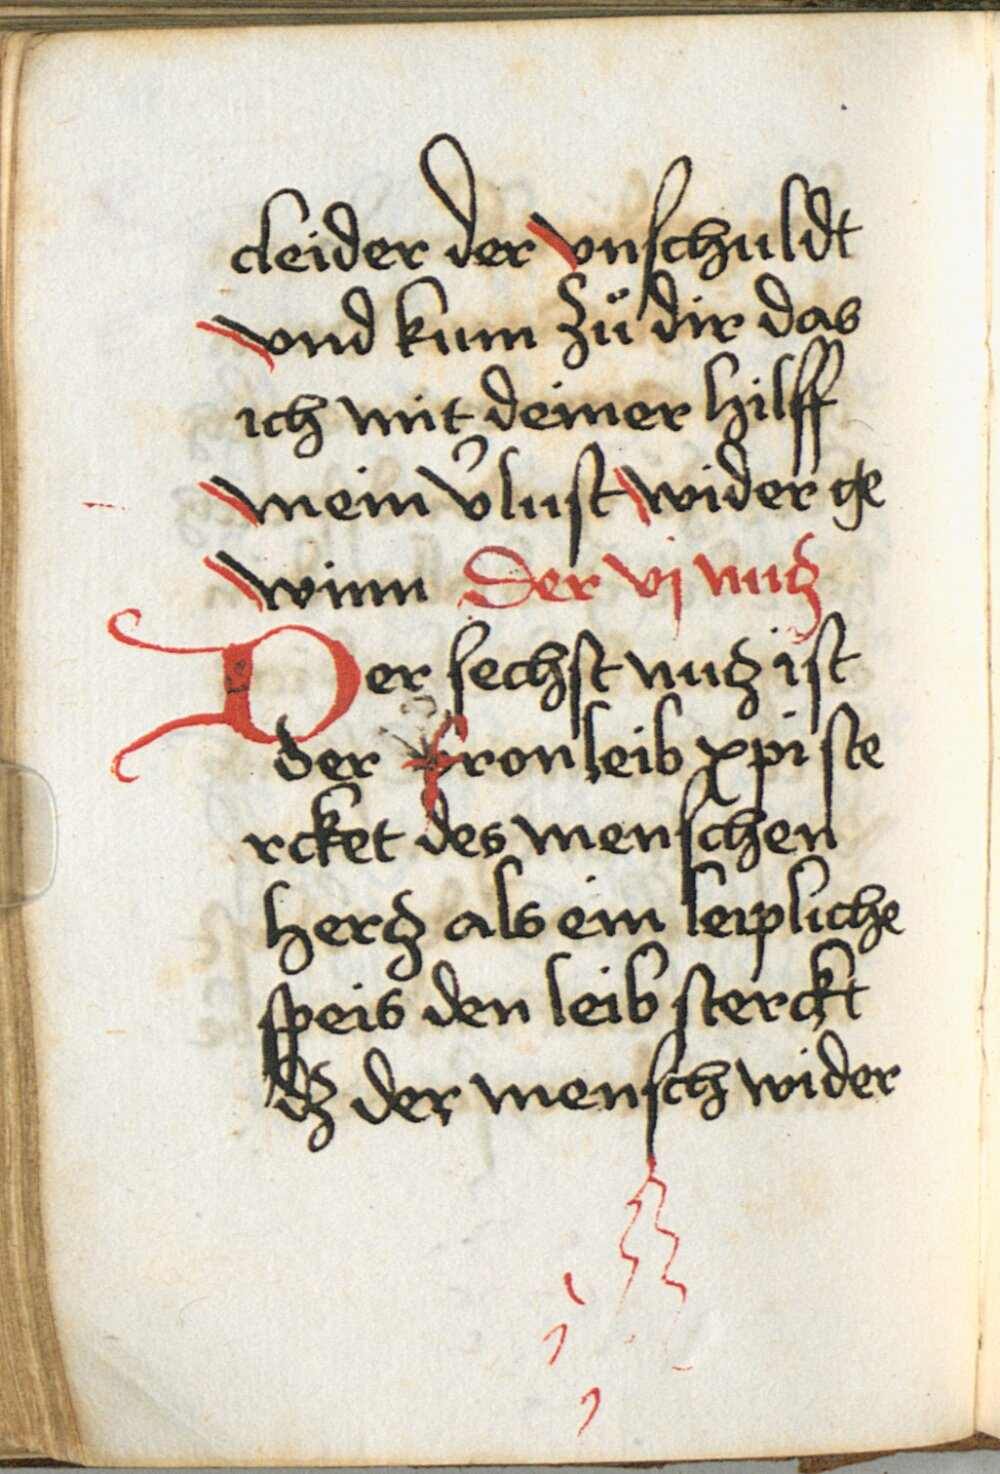 cleider der vnschuldt
vnd kum zů dir das
ich mit deiner hilff
mein v̉lust wider ge
winn Der vj nutz
Der sechst nutz ist
der fronleib xpi ste
rcket des menschen
hertz als ein leipliche
speis den leib sterckt
dz der mensch wider